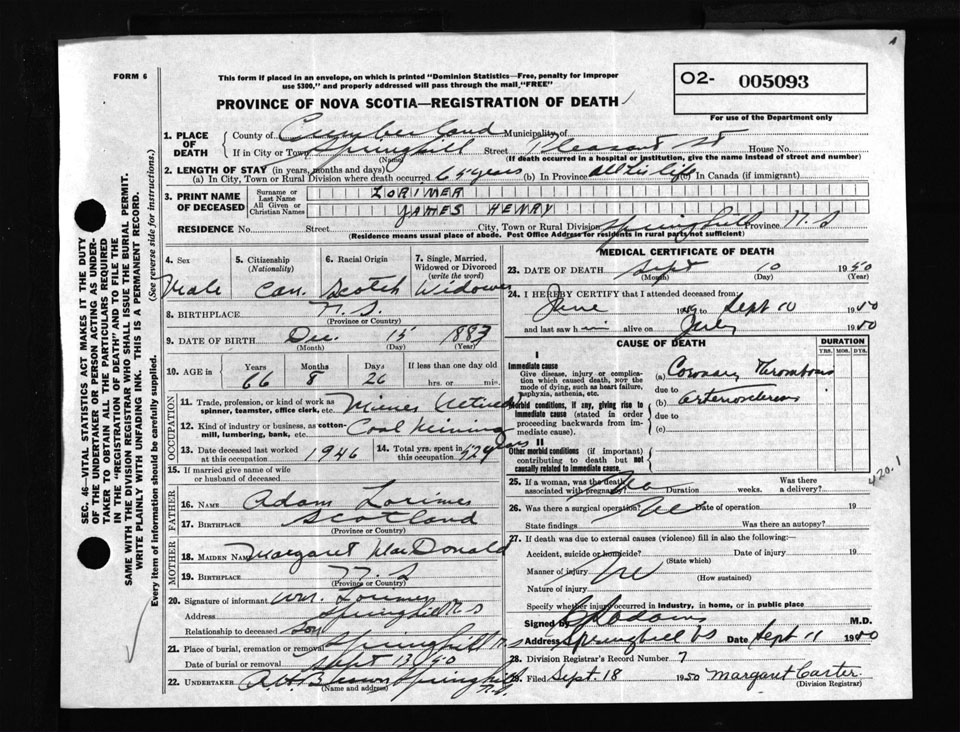 FORM 6
This form if placed in an envelope, on which is printed "Dominion Statistics—Free, penalty for improper
use $300," and properly addressed will pass through the mail "FREE"
O2- 005093
For use of the Department only
PROVINCE OF NOVA SCOTIA—REGISTRATION OF DEATH
SEC. 46—VITAL STATISTICS ACT MAKES IT THE DUTY
OF THE UNDERTAKER OR PERSON ACTING AS UNDER-
TAKER TO OBTAIN ALL THE PARTICULARS REQUIRED
IN THE "REGISTRATION OF DEATH" AND TO FILE THE
SAME WITH THE DIVISION REGISTRAR WHO SHALL ISSUE THE BURIAL PERMIT.
WRITE PLAINLY WITH UNFADING INK. THIS IS A PERMANENT RECORD.
Every item of information should be carefully supplied. (See reverse side for instructions.)
1. PLACE OF DEATH
County of Cumberland Municipality of
If in City or Town Springhill Street Pleasant St House No.
(Name) (If death occurred in a hospital or institution, give the name instead of street and number)
2. LENGTH OF STAY (in years, months and days)
(a) In City, Town or Rural Division where death occurred 65 years (b) In Province All his life (c) In Canada (if immigrant)
3. PRINT NAME OF DECEASED
Surname or Last Name LORIMER
All Given or Christian Names JAMES HENRY
RESIDENCE No. Street City, Town or Rural Division Springhill Province N.S
(Residence means usual place of abode. Post Office Address for residents in rural parts not sufficient)
4. Sex Male
5. Citizenship (Nationality) Can.
6. Racial Origin Scotch
7. Single, Married, Widowed or Divorced (write the word) Widower
8. BIRTHPLACE N.S.
(Province or Country)
9. DATE OF BIRTH Dec. 15 1883
(Month) (Day) (Year)
10. AGE in Years Months Days If less than one day old
66 8 26 hrs. or min.
OCCUPATION
11. Trade, profession, or kind of work as spinner, teamster, office clerk, etc. Miner (retired)
12. Kind of industry or business, as cotton-mill, lumbering, bank, etc. Coal Mining
13. Date deceased last worked at this occupation 1946
14. Total yrs. spent in this occupation 52 years
15. If married give name of wife or husband of deceased
FATHER
16. NAME Adam Lorimer
17. BIRTHPLACE Scotland
(Province or Country)
MOTHER
18. MAIDEN NAME Margaret MacDonald
19. BIRTHPLACE N.S
(Province or Country)
20. Signature of informant Wm. Lorimer
Address Springhill N S
Relationship to deceased Son
21. Place of burial, cremation or removal Springhill N.S
Date of burial or removal Sept 13/50
22. UNDERTAKER A.H. Brown Springhill N.S.
(Name and address)
MEDICAL CERTIFICATE OF DEATH
23. DATE OF DEATH Sept 10 1950
(Month) (Day) (Year)
24. I HEREBY CERTIFY that I attended deceased from:
June to Sept 10 1950
and last saw h im alive on July 1950
CAUSE OF DEATH
DURATION
YRS. MOS. DYS.
I
Immediate cause
Give disease, injury or complication which caused death, not the mode of dying, such as heart failure, asphyxia, asthenia, etc.
(a) Coronary Thrombosis
due to
Morbid conditions, if any, giving rise to immediate cause (stated in order proceeding backwards from immediate cause).
(b) Arteriosclerosis
due to
(c)
II
Other morbid conditions (if important) contributing to death but not causally related to immediate cause.
420.1
25. If a woman, was the death associated with pregnancy? No Duration weeks. Was there a delivery?
26. Was there a surgical operation? No Date of operation 19
State findings Was there an autopsy?
27. If death was due to external causes (violence) fill in also the following:
Accident, suicide or homicide? Date of injury 19
(State which)
Manner of injury
(How sustained)
Nature of injury
Specify whether injury occurred in industry, in home, or in public place
Signed by M.D.
Address Springhill NS Date Sept 11 1950
28. Division Registrar's Record Number 7
29. Filed Sept. 18 1950 Margaret Carter
(Division Registrar)